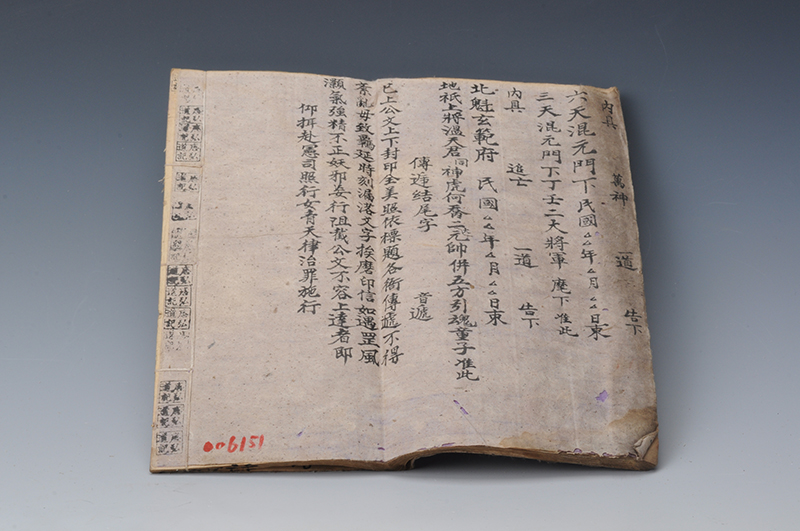 內具　萬神　一道　告下
六天混元門下民國ㄙㄙ年ㄙ月ㄙㄙ日東
三天混元門下丁壬二大將軍麾下准此
內具　追亡　一道　告下
北魁玄範府　民國ㄙㄙ年ㄙ月ㄙㄙ日東
地祇上將溫天君同神虎何喬二元帥併五方引魂童子准此
傳遞結尾字　音遞
已上公文上下封印全美照依標題各衙傳遞不得
紊亂毋致羈延時刻漏落文字挨磨印信如遇罡風
灝氣強精不正妖邪妄行阻截公文不容上達者即
仰拝赴憲司照行女青天律治罪施行
006151